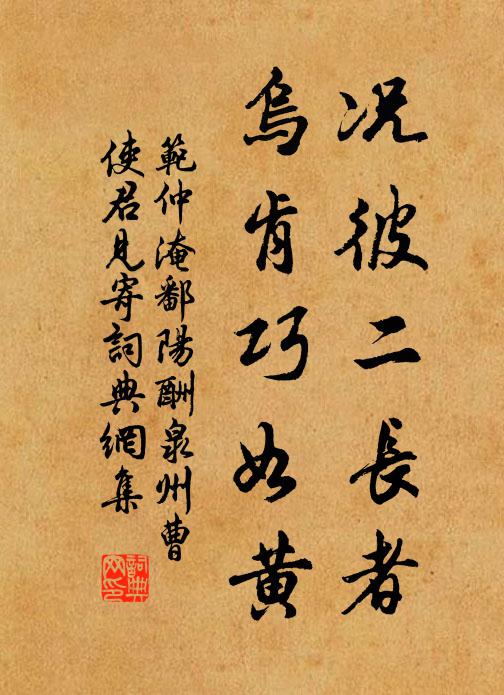 况彼二長者
烏肯巧如黃
範仲淹鄱陽酬泉州曹
使君見寄詞典網集
詞典
网印